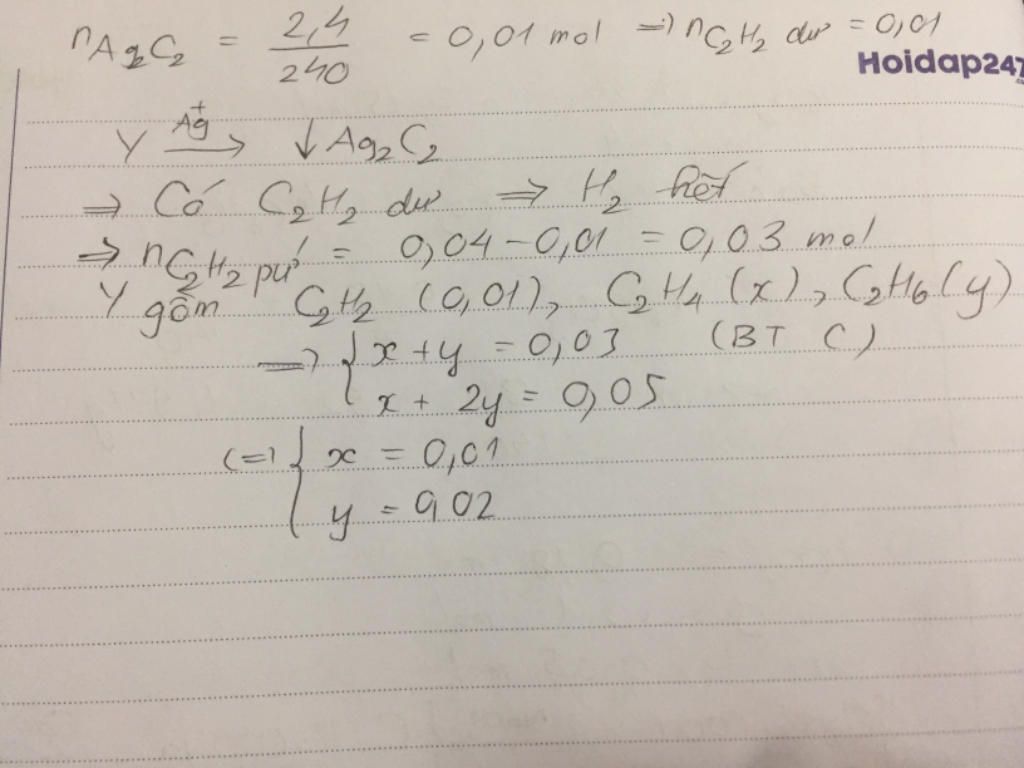 nAg2C2 = 2,4/240 = 0,01 mol => nC2H2 dư = 0,01
Hoidap247
Y Ag+ → ↓Ag2C2
=> Có C2H2 dư => H2 hết
=> nC2H2 pứ = 0,04 - 0,01 = 0,03 mol
Y gồm C2H2 (0,01), C2H4 (x), C2H6 (y)
=> { x + y = 0,03 (BT C)
x + 2y = 0,05
(=) { x = 0,01
y = 0,02